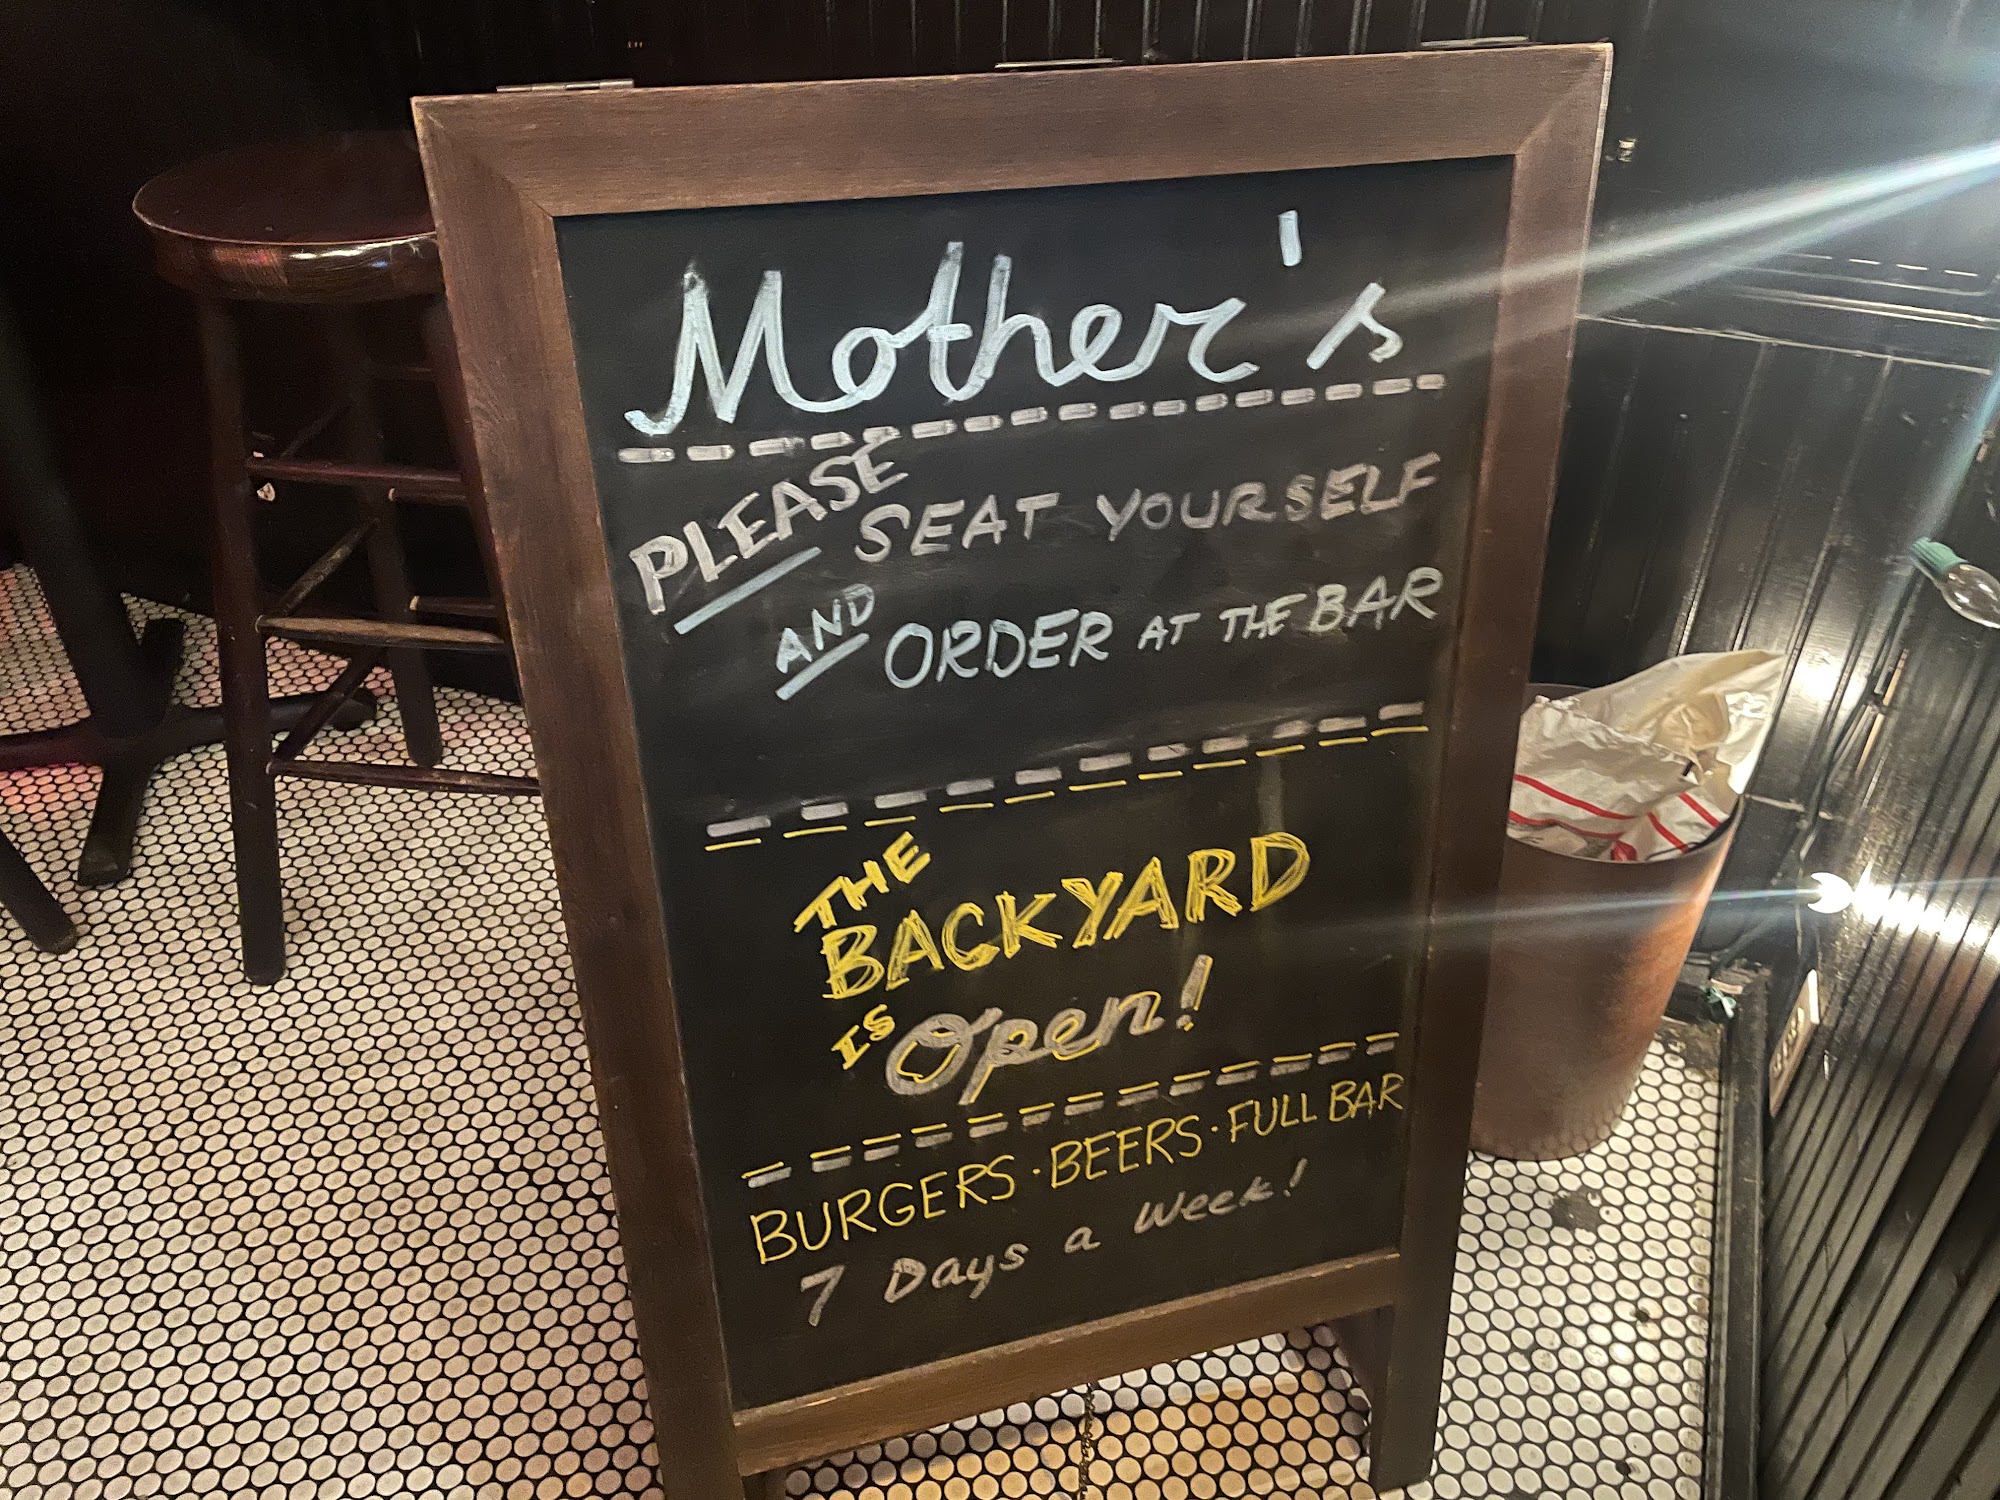 Mother's
PLEASE SEAT YOURSELF
AND ORDER AT THE BAR
THE
BACKYARD
IS Open!
BURGERS · BEERS · FULL BAR
7 Days a Week!